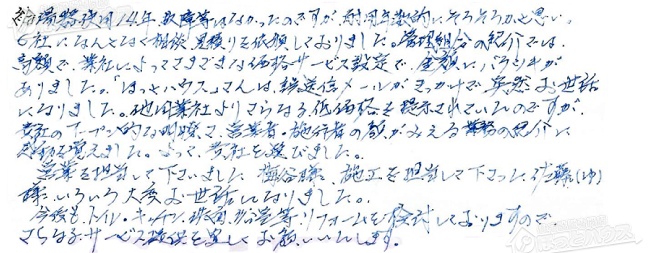 給湯器使用14年、故障等はなかったのですが、耐用年数的にそろそろかと思い、
6社になんとなく相談、見積りを依頼しておりました。管理組合の紹介では、
高額で、業社によってさまざまな価格サービス設定で、金額にバラツキが
ありました。「ほっとハウス」さんは、 メールがきっかけで 突然お世話
になりました。他同業社よりさらなる低価格を提示されていたのですが、
貴社のオープン的な 、営業者、施行者の顔がみえる 業務の紹介に
感動を覚えました。よって、貴社を選びました。
営業を担当して下さいました 梅谷様、施工を担当して下さった佐藤(ゆ)
様、いろいろ大変お世話になりました。
今後も、トイレ、キッチン、 浴室等リフォームを検討しておりますので、
さらなるサービス提供を よろしくお願いいたします。